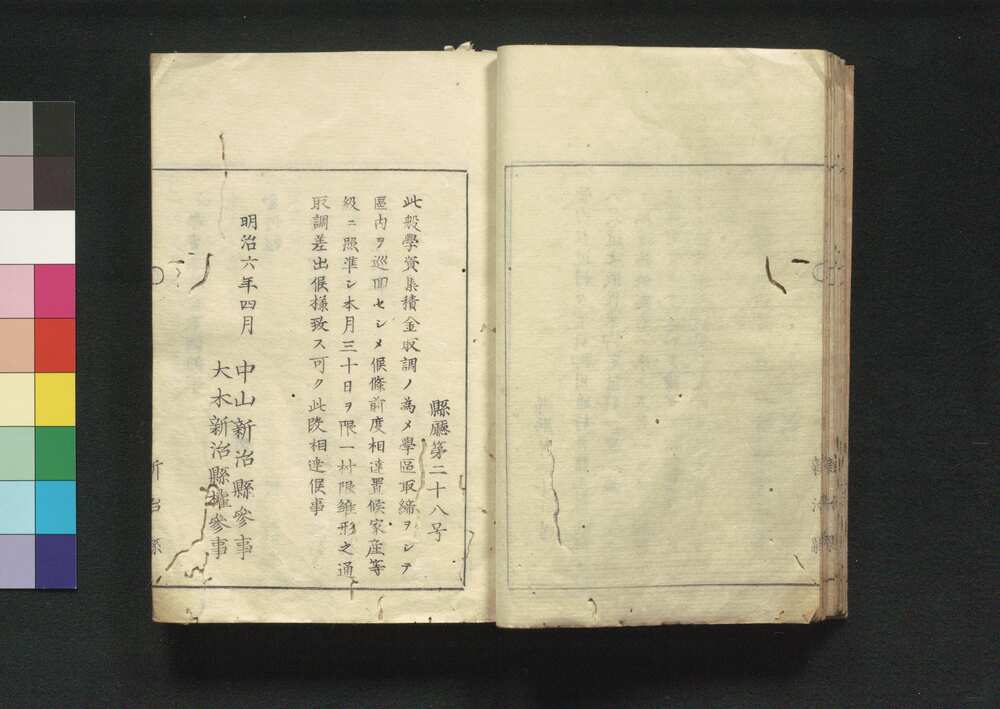 縣廳第二十八号
此般學資集積金取調ノ為メ學區取締ヲシテ
區内ヲ巡回セシメ候條前度相達置候家産等
級ニ照準シ本月三十日ヲ限一村限雛形之通
取調差出候様致ス可ク此段相達候事
明治六年四月
中山新治縣參事
大木新治縣權參事
新治縣